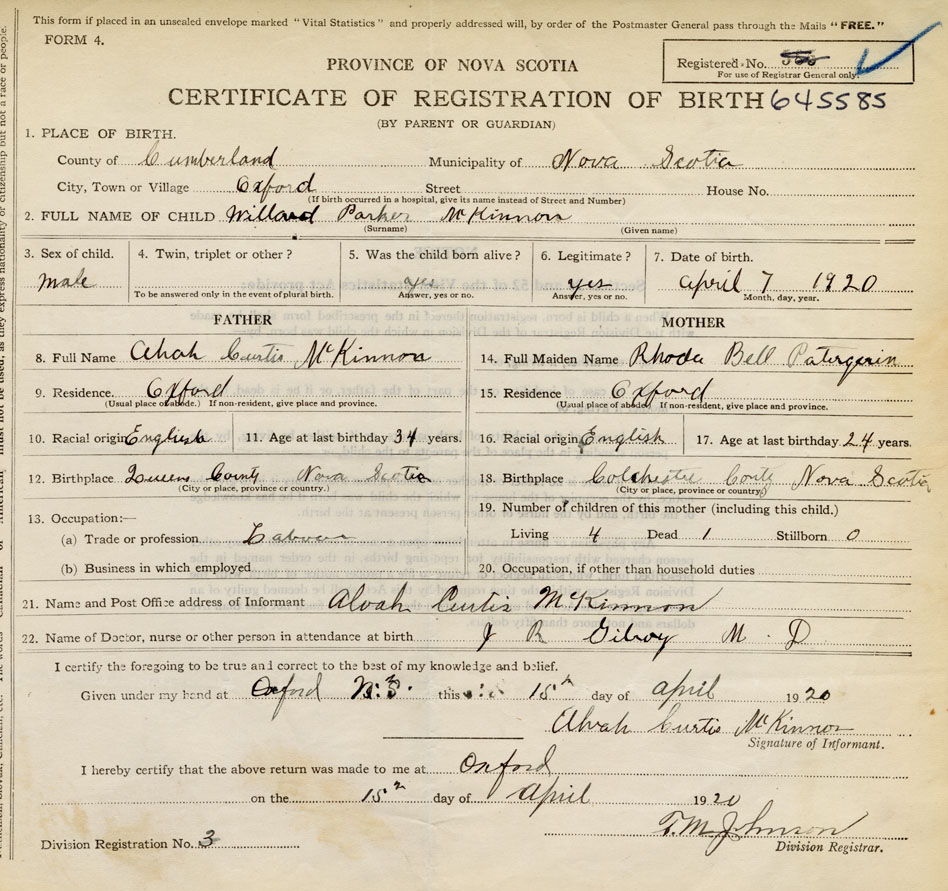 This form if placed in an unsealed envelope marked "Vital Statistics" and properly addressed will, by order of the Postmaster General pass through the Mails "FREE."
FORM 4.
Registered No.
For use of Registrar General only.
PROVINCE OF NOVA SCOTIA
CERTIFICATE OF REGISTRATION OF BIRTH 645585
(BY PARENT OR GUARDIAN)
1. PLACE OF BIRTH.
County of Cumberland Municipality of Nova Scotia
City, Town or Village Oxford Street House No.
(If birth occurred in a hospital, give its name instead of Street and Number)
2. FULL NAME OF CHILD Willard Parker McKinnon
(Surname) (Given name)
3. Sex of child. 4. Twin, triplet or other? 5. Was the child born alive? 6. Legitimate? 7. Date of birth.
male yes yes april 7 1920
To be answered only in the event of plural birth. Answer, yes or no. Answer, yes or no. Month, day, year.
FATHER MOTHER
8. Full Name Alvah Curtis McKinnon 14. Full Maiden Name Rhoda Bell
9. Residence Oxford 15. Residence Oxford
(Usual place of abode.) If non-resident, give place and province. (Usual place of abode) If non-resident, give place and province.
10. Racial origin English 11. Age at last birthday 34 years. 16. Racial origin English 17. Age at last birthday 24 years.
12. Birthplace Queens County Nova Scotia 18. Birthplace Colchester Nova Scotia
(City or place, province or country.) (City or place, province or country)
13. Occupation:— 19. Number of children of this mother (including this child.)
(a) Trade or profession Labourer Living 4 Dead 1 Stillborn 0
(b) Business in which employed 20. Occupation, if other than household duties
21. Name and Post Office address of Informant Alvah Curtis McKinnon
22. Name of Doctor, nurse or other person in attendance at birth. J R Gilroy M.D
I certify the foregoing to be true and correct to the best of my knowledge and belief.
Given under my hand at Oxford N.S. this 15 day of april 1920
Alvah Curtis McKinnon
Signature of Informant.
I hereby certify that the above return was made to me at Oxford
on the 15 day of april 1920
T. M. Johnson
Division Registrar.
Division Registration No. 3